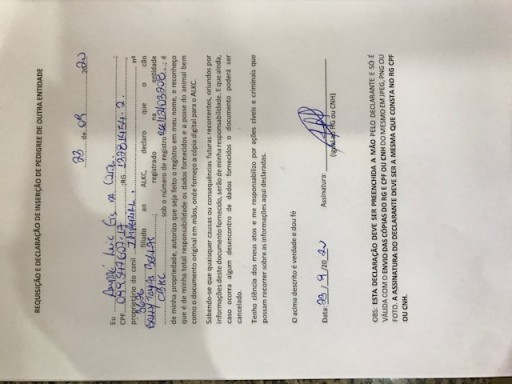 REQUISIÇÃO E DECLARAÇÃO DE INSERÇÃO DE PEDIGREE DE OUTRA ENTIDADE
23 de 09 2020
Eu
CPF RG
proprietário do canil nº
filiado ao ALKC, declaro que o cão
registrado entidade
CBKC sob o número de registro ; é
de minha propriedade, autorizo que seja feito o registro em meu nome, e reconheço
que é de minha total responsabilidade os dados fornecidos e a posse do animal bem
como o documento original em mãos, onde forneço a cópia digital para o ALKC.
Sabendo-se que quaisquer causas ou consequências futuras recorrentes, oriundos por
informações deste documento fornecido, serão de minha responsabilidade. E que ainda,
caso ocorra algum desencontro de dados fornecidos o documento poderá ser
cancelado.
Tenho ciência dos meus atos e me responsabilizo por ações cíveis e criminais que
possam recorrer sobre as informações aqui declaradas.
O acima descrito é verdade e dou fé
Data: 23 / 9 /20 20 Assinatura:
(igual ao RG ou CNH)
OBS: ESTA DECLARAÇÃO DEVE SER PREENCHIDA A MÃO PELO DECLARANTE E SÓ É
VÁLIDA COM O ENVIO DAS CÓPIAS DO RG E CPF OU CNH DO MESMO EM JPEG, PNG OU
FOTO. A ASSINATURA DO DECLARANTE DEVE SER A MESMA QUE CONSTA NO RG CPF
OU CNH.